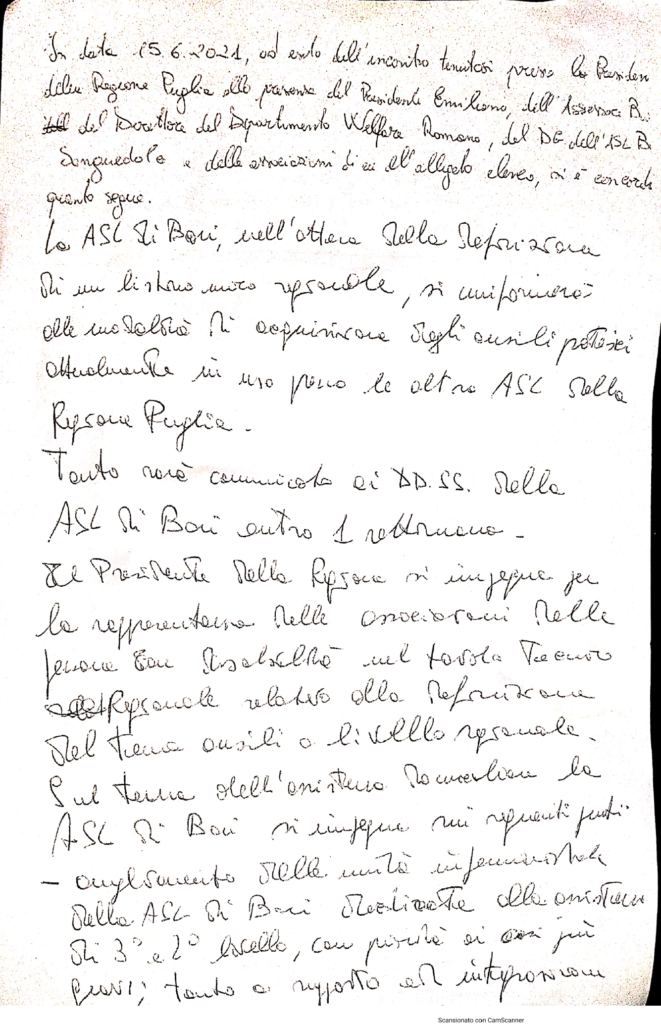 In data 15.6.2021, ad esito dell'incontro tenutosi presso la Presiden
della Regione Puglia alla presenza del Presidente Emiliano, dell'Assessore B.
del Direttore del Dipartimento Welfare Romano, del DG dell'ASL B
Sanguedolce e delle associazioni di cui all'allegato elenco, si è concorda
quanto segue.
La ASL di Bari, nell'attesa della definizione
di un listino unico regionale, si uniformerà
alle modalità di acquisizione degli ausili protesici
attualmente in uso presso le altre ASL della
Regione Puglia.
Tanto sarà comunicato ai DD.SS. della
ASL di Bari entro 1 settimana.
Il Presidente della Regione si impegna per
la rappresentanza delle associazioni delle
persone con disabilità nel tavolo tecnico
Regionale relativo alla definizione
del tema ausili a livello regionale.
Sul tema dell'assistenza domiciliare la
ASL di Bari si impegna sui seguenti punti:
- ampliamento delle unità infermieristiche
della ASL di Bari dedicate alla assistenza
di 3° e 2° livello, con priorità ai casi più
gravi; tanto a supporto ed integrazione
Scansionato con CamScanner